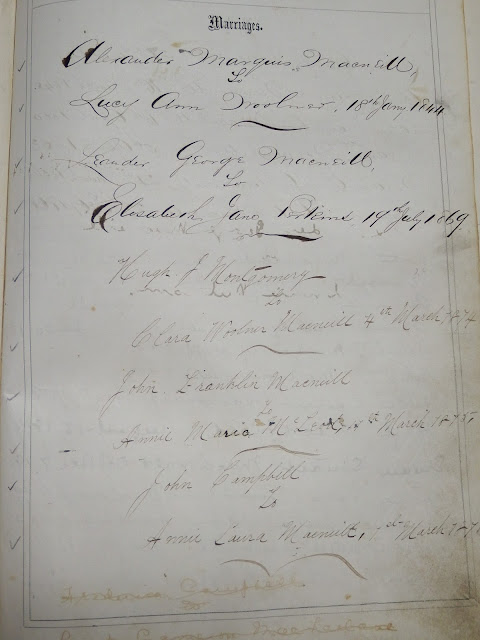 Marriages.
Alexander Marquis Macneill,
To
Lucy Ann Woolner, 18th Jany 1844
Leander George Macneill,
To
Elisabeth Jane Perkins, 14th July 1869
Hugh J Montgomery
To
Clara Woolner Macneill 4th March 1874
John Franklin Macneill
To
Annie Maria McLeod, March 1875
John Campbell
To
Annie Laura Macneill, March
Frederica Campbell
To
Cameron MacFarlane